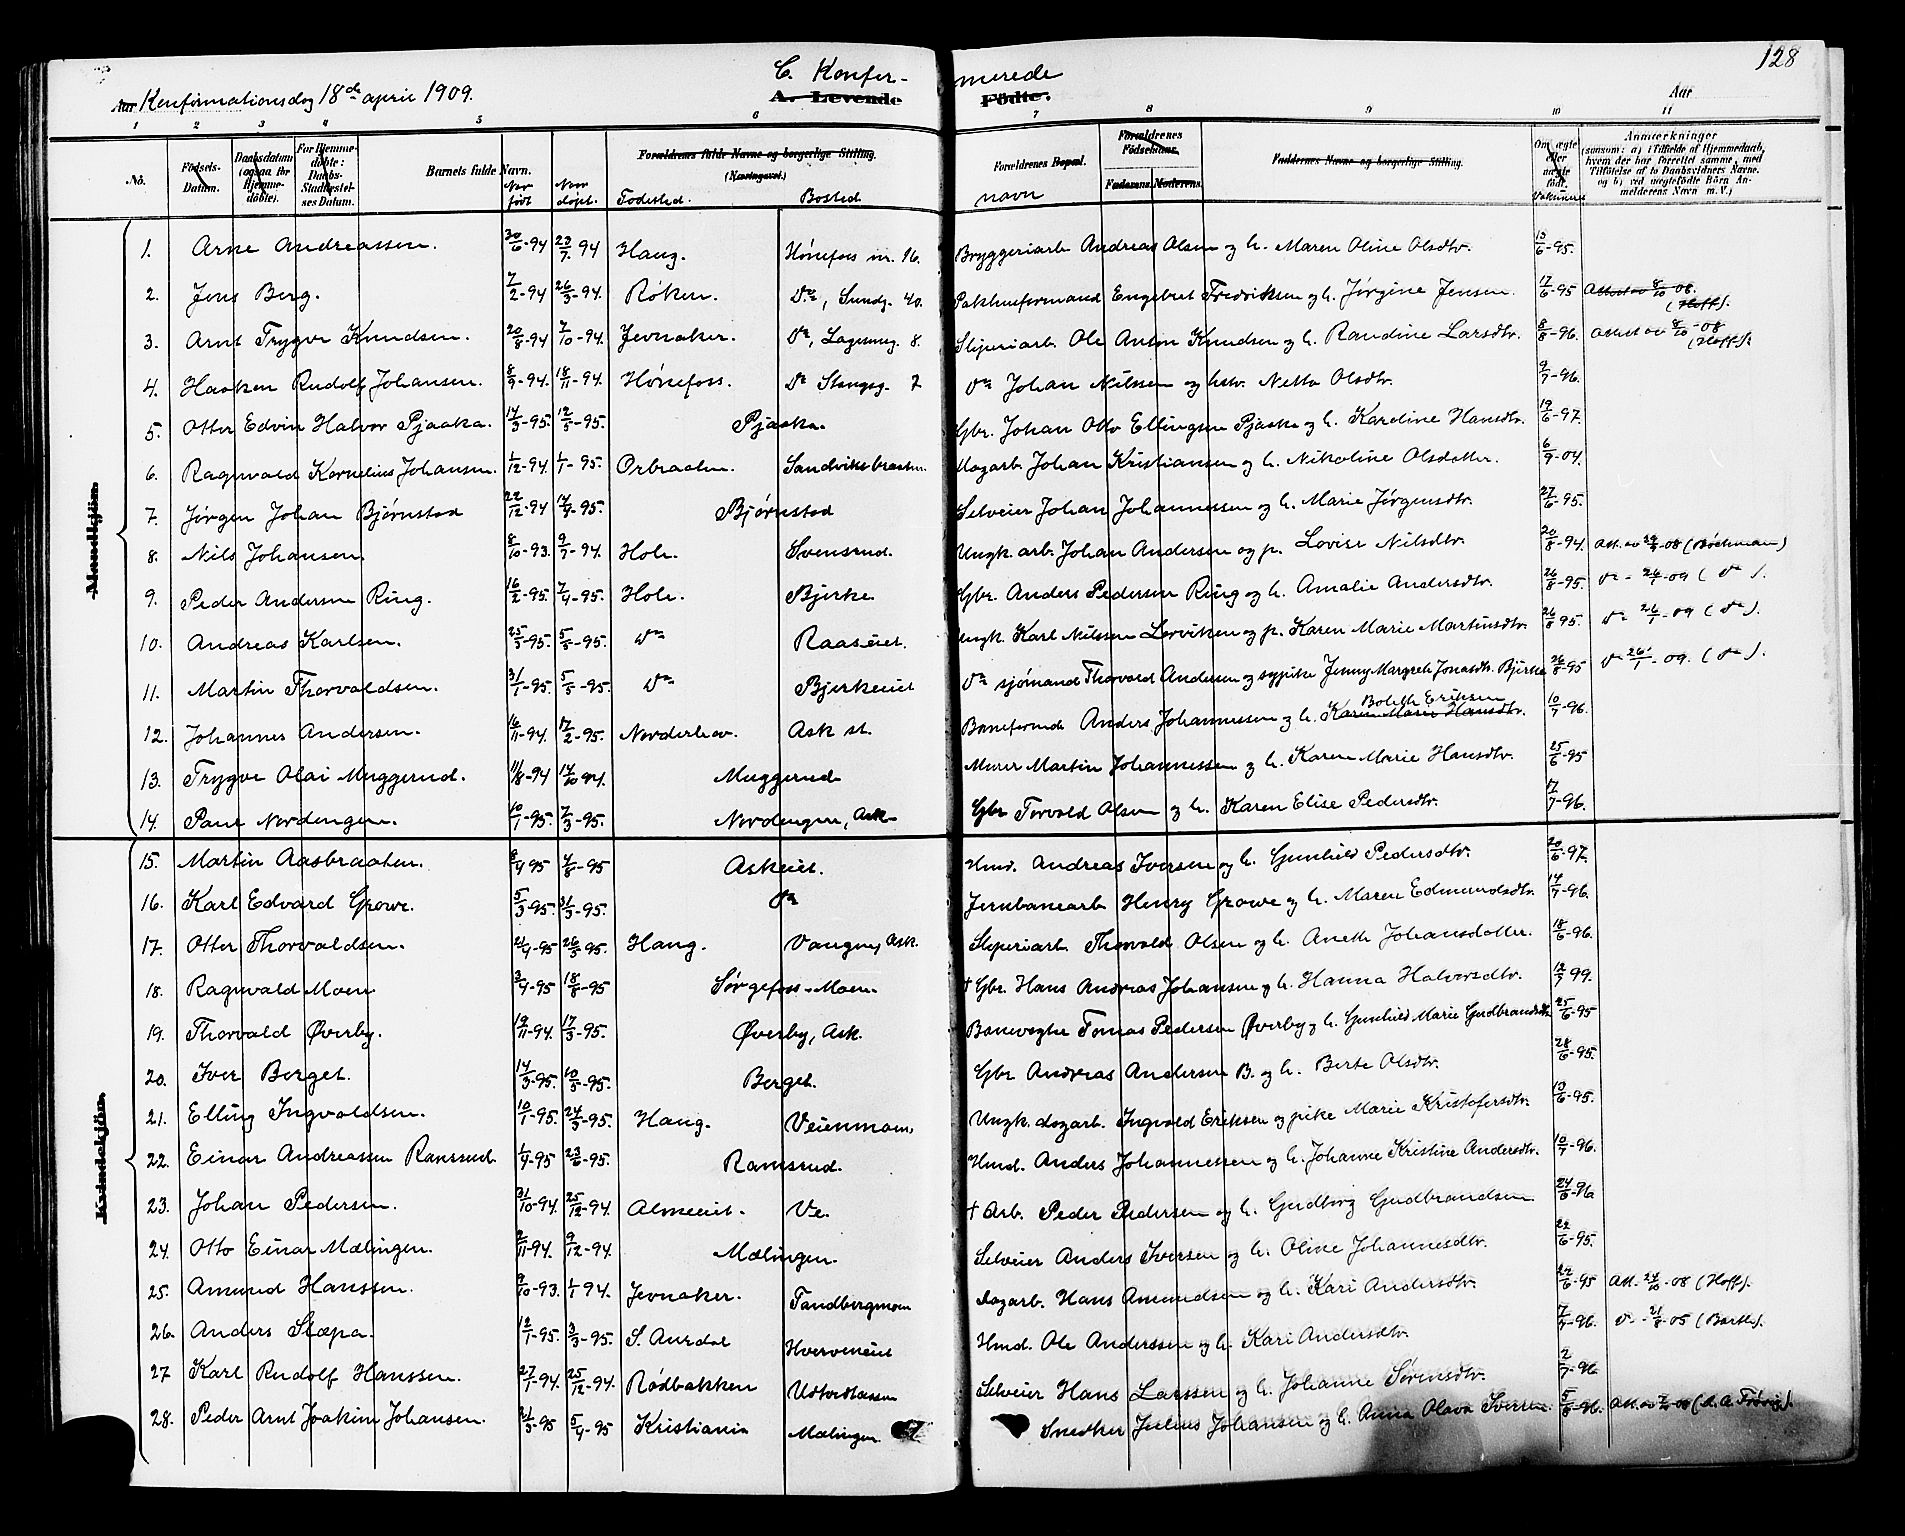 128
C. Konfer- merede
Aar Konfirmationsdag 18de april 1909. A. Levende Födte. Aar
1 2 3 4 5 6 7 8 9 10 11
No. Födsels-Datum. Daabsdatum (ogsaa for Hjemmedöbte). For Hjemmedöbte: Daabs-Stadfæstelses Datum. Barnets fulde Navn. Naar født Naar døpt. Forældrenes fulde Navne og borgerlige Stilling. (Næringsvei.) Fødested. Bosted Forældrenes Bopæl. navn Forældrenes Födselsaar. Faderens. Moderens. Faddernes Navne og borgerlige Stilling. Om ægte eller uægte født. Vaksineret Anmærkninger (saasom: a) i Tilfælde af Hjemmedaab, hvem der har forrettet samme, med Tilføielse af to Daabsvidners Navne. og b) ved uegtefödte Börn Anmelderens Navn m. V.)
Mandkjön.
1. Arne Andreassen. 30/6-94 23/7 94 Haug. Hønefoss nr. 16. Bryggeriarb. Andreas Olsen og h. Maren Oline Olsdtr. 13/6-95.
2. Jens Berg. 7/2-94 26/3-94. Røken. Do, Sundg. 40. Pakhusformand Engebret Fredriksen og h. Jørgine Jensen. 17/6-95 Attest av 8/10-08. (Hoff).
3. Arnt Trygve Knudsen. 20/8-94 7/10-94. Jevnaker. Do, 8. Sliperiarb. Ole Anton Knudsen og h. Randine Larsdtr. 8/8-96. Attest av 8/10-08 (Hoff).
4. Haaken Rudolf Johansen. 8/9-94. 18/11-94. Hønefoss. Do Stangsg. 7 Do Johan Nilssen og hstr. Netta Olsdtr. 9/7-96.
5. Otter Edvin Halvor Pjaaka. 14/3-95. 12/5-95. Pjaaka. Gbr. Johan Otto Ellingsen Pjaaka og h. Karoline Hansdtr. 19/6-97.
6. Ragnvald Kornelius Johansen. 1/12-94 1/1-95. Orbraaten. Sandviksbraaten. Dagarb. Johan Kristiansen og h. Nikoline Olsdatter. 6/9-04.
7. Jørgen Johan Bjørnstad 22/12-94 14/4-95. Bjørnstad Selveier Johan Johannessen og h. Marie Jørgensdtr. 27/6-95.
8. Nils Johansen. 8/10-93. 9/7-94. Hole. Svensrud. Ungk. arb. Johan Andersen og p. Lovise Nilsdtr. 20/8-94. Att. av -08 (Bóckman)
9. Peder Andersen Ring. 16/2-95. 7/4-95. Hole. Bjerke Gbr. Anders Pedersen Ring og h. Amalie Andersdtr. 26/8-95. Do - 26/1-09 (Do).
10. Andreas Karlsen. 25/3-95. 5/5-95. Do Raaseiet. Ungk. Karl Nilssen Lerviken og p. Karen Marie Martinsdtr. 26/8 95. Do - 26/1-09 (Do).
11. Martin Thorvaldsen. 31/1-95. 5/5-95. Do Bjerkeiet Do sjømand Thorvald Andersen og sypike Jenny Margrete Jonasdtr. Bjerke 26/8-95 Do - 26/1-09. (Do).
Boleth Eriksen
12. Johannes Andersen. 16/11-94. 17/2-95. Norderhov. Ask st. Baneformd. Anders Johannessen og h. Karen Marie Hansdtr. 10/7-96.
13. Trygve Olai Muggerud. 11/8-94 14/10 94. Muggerud Murer Martin Johannessen og h. Karen Marie Hansdtr. 25/6-95
14. Paul Nordengen. 10/1-95. 7/3-95. Nordengen, Ask Gbr Torvald Olsen og h. Karen Elise Pedersdtr. 17/7-96.
Kvindekjön.
15. Martin Aasbraaten. 8/4 95 4/8-95 Askeiet. Hmd. Andreas Iversen og h. Gunhild Pedersdtr. 20/6-97.
16. Karl Edvard Growe. 5/3-95. 31/3-95. Do Jernbanearb. Henry Growe og h. Maren Edmundsdtr. 14/7-96.
17. Otter Thorvaldsen. 21/4-95 26/5 95. Haug. Vaagney Ask. Sliperiarb. Thorvald Olsen og h. Aneth Johansdatter. 18/6-96.
18. Ragnvald Moen 3/4-95 18/8-95 Sørgefoss-Moen. † Gbr. Hans Andreas Johansen og h. Hanna Halvorsdtr. 12/7 99.
19. Thorvald Øverby. 19/11-94. 17/3-95. Øverby, Ask. Banevogter Tomas Pedersen Øverby og h. Gunhild Marie Gudbrandsdtr. 25/6-95
20. Iver Berget. 14/3-95. 10/5-95. Berget. Gbr Andreas Andersen B. og h. Berte Olsdtr. 28/6-95.
21. Elling Ingvaldsen. 10/1-95. 24/3-95. Haug. Veienmoen. Ungk. dagarb. Ingvald Eriksen og pike Marie Kristofersdtr. 10/6-95.
22. Einar Andreassen Ramsrud 1/4-95 23/6-95. Ramsrud. Hmd. Anders Johannessen og h. Johanne Kristine Andersdtr. 10/7-96.
23. Johan Pedersen. 31/10-94. 25/12-94. Almeeiet. Ve. † Arb. Peder Pedersen og h. Gudborg Gudbrandsen 24/6-96
24. Otto Einar Mælingen. 2/11-94. 9/12-94. Mælingen. Selveier Anders Iversen og h. Oline Johannesdtr. 22/6-95.
25. Amund Hanssen. 9/10-93. 1/1 94. Jevnaker. Tandbergmoen Dagarb. Hans Amundsen og h. Kari Andersdtr. 22/6-95 Att. 24/10-08 (Hoff).
26. Anders Slæpa. 12/1-95. 3/3-95. S. Aurdal Hverveneiet Hmd. Ole Anderssen og h. Kari Andersdtr. 7/7-96. Do - 21/8-05 (Barth).
27 Karl Rudolf Hanssen. 27/1-94. 25/12-94. Rødbakken Selveier Hans Larssen og h. Johanne Sørensdtr. 2/7-96
28. Peder Arnt Joakim Johansen. 21/3-95 5/4-95 Kristiania Mælingen Snedker Julius Johansen og h. Anna Olava Iversen. 5/8-96.